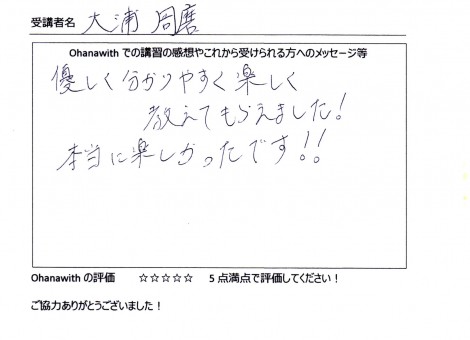 受講者名 大浦 周磨
Ohanawith での講習の感想やこれから受けられる方へのメッセージ等
優しく分かりやすく楽しく
教えてもらえました!
本当に楽しかったです!!
Ohanawith の評価 ☆☆☆☆☆ 5 点満点で評価してください!
ご協力ありがとうございました!